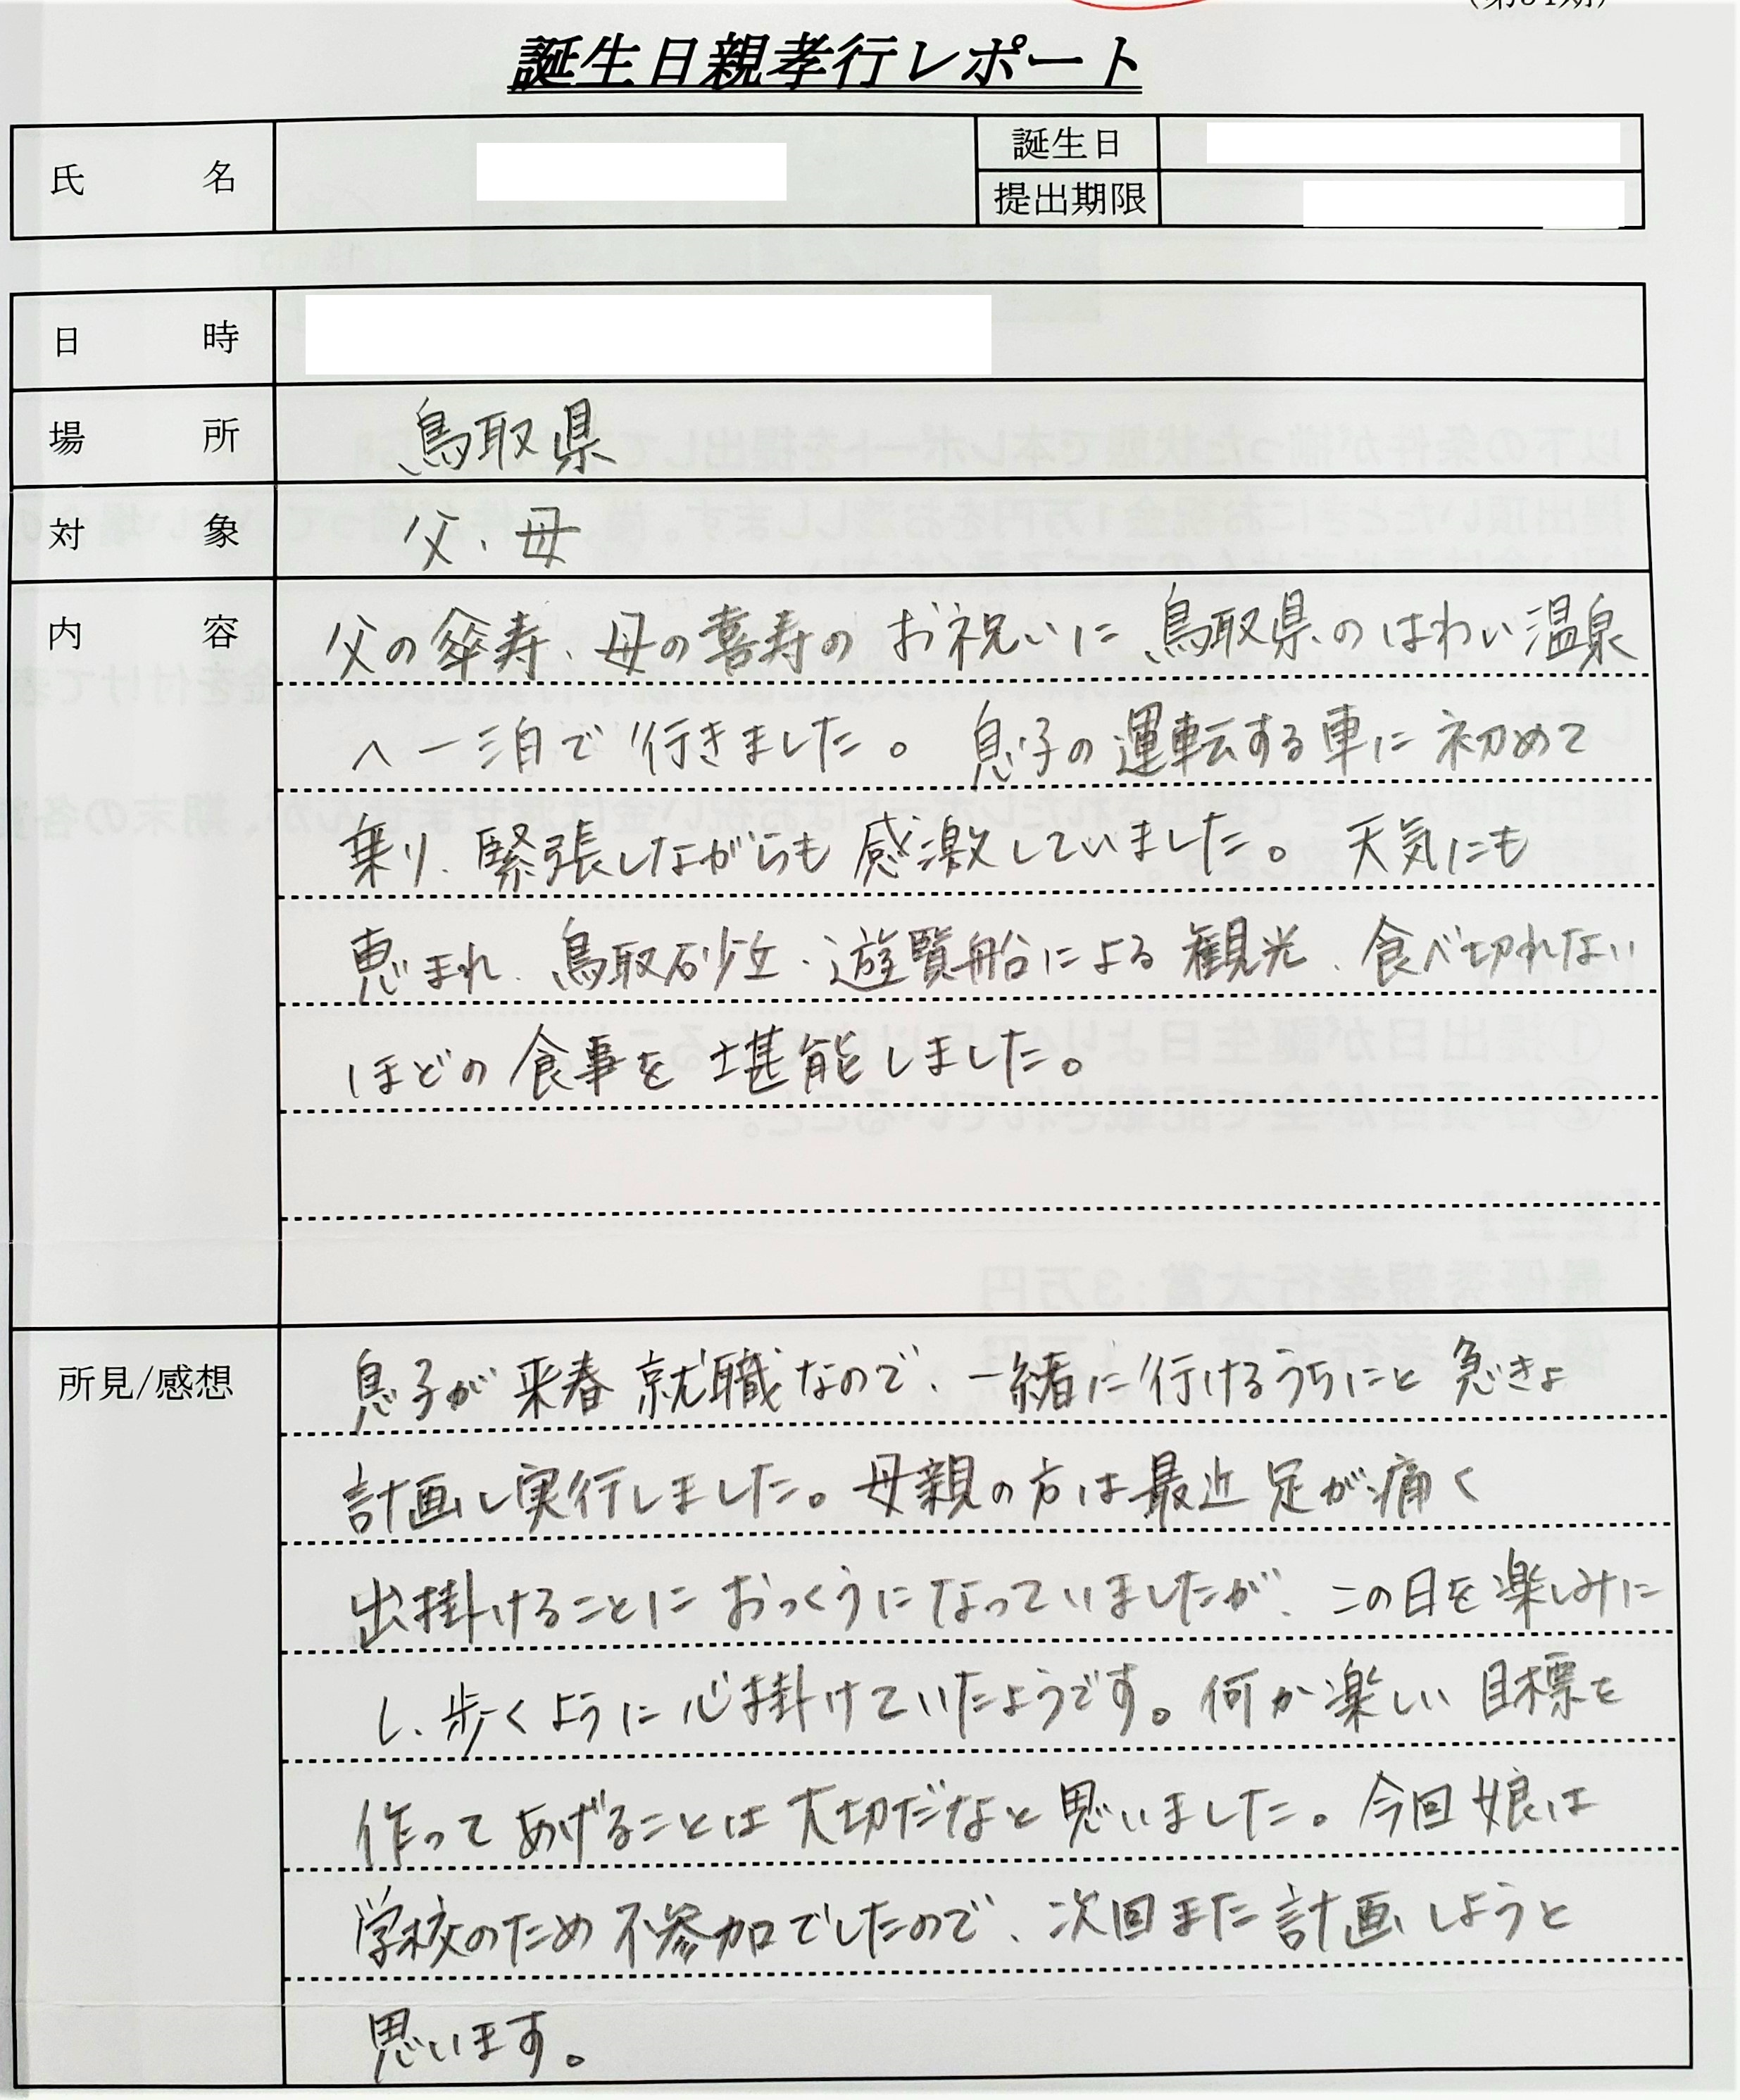 誕生日親孝行レポート
氏名
誕生日
提出期限
日時
場所 鳥取県
対象 父、母
内容 父の傘寿、母の喜寿のお祝いに、鳥取県のはわい温泉
へ一泊で行きました。息子の運転する車に初めて
乗り、緊張しながらも感激していました。天気にも
恵まれ、鳥取砂丘・遊覧船による観光、食べ切れない
ほどの食事を堪能しました。
所見/感想 息子が来春就職なので、一緒に行けるうちにと急きょ
計画し実行しました。母親の方は最近足が痛く
出掛けることにおっくうになっていましたが、この日を楽しみに
し、歩くように心掛けていたようです。何か楽しい目標を
作ってあげることは大切だなと思いました。今回娘は
学校のため不参加でしたので、次回また計画しようと
思います。